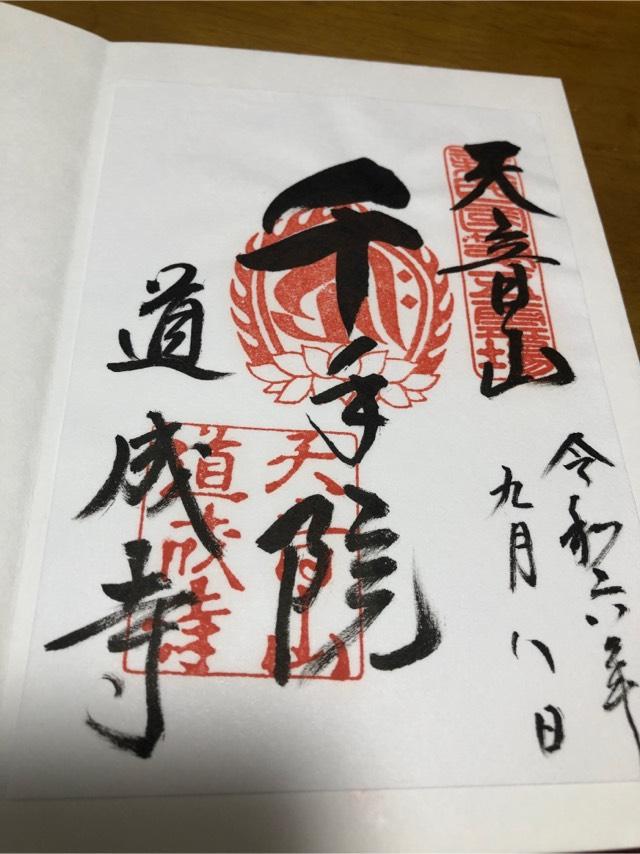 令和六年
九月八日
天音山
千手院
道成寺
天音山
道成寺